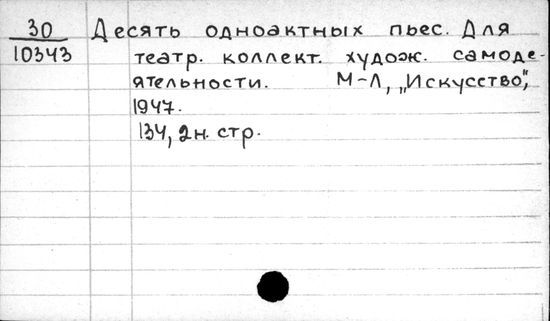 30 Десять одноактных пьес. Для
10343 театр. коллект. худож. самоде-
ятельности. М-Л, „Искусство",
1947.
134, 2н. стр.